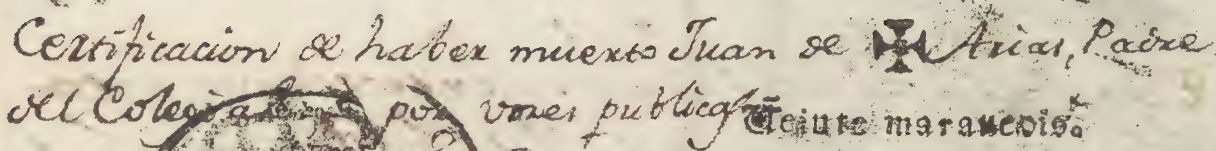 Certificacion de haber muerto Juan de Arias, Padre
del Colegial por voces publicas
Veinte maravedis.